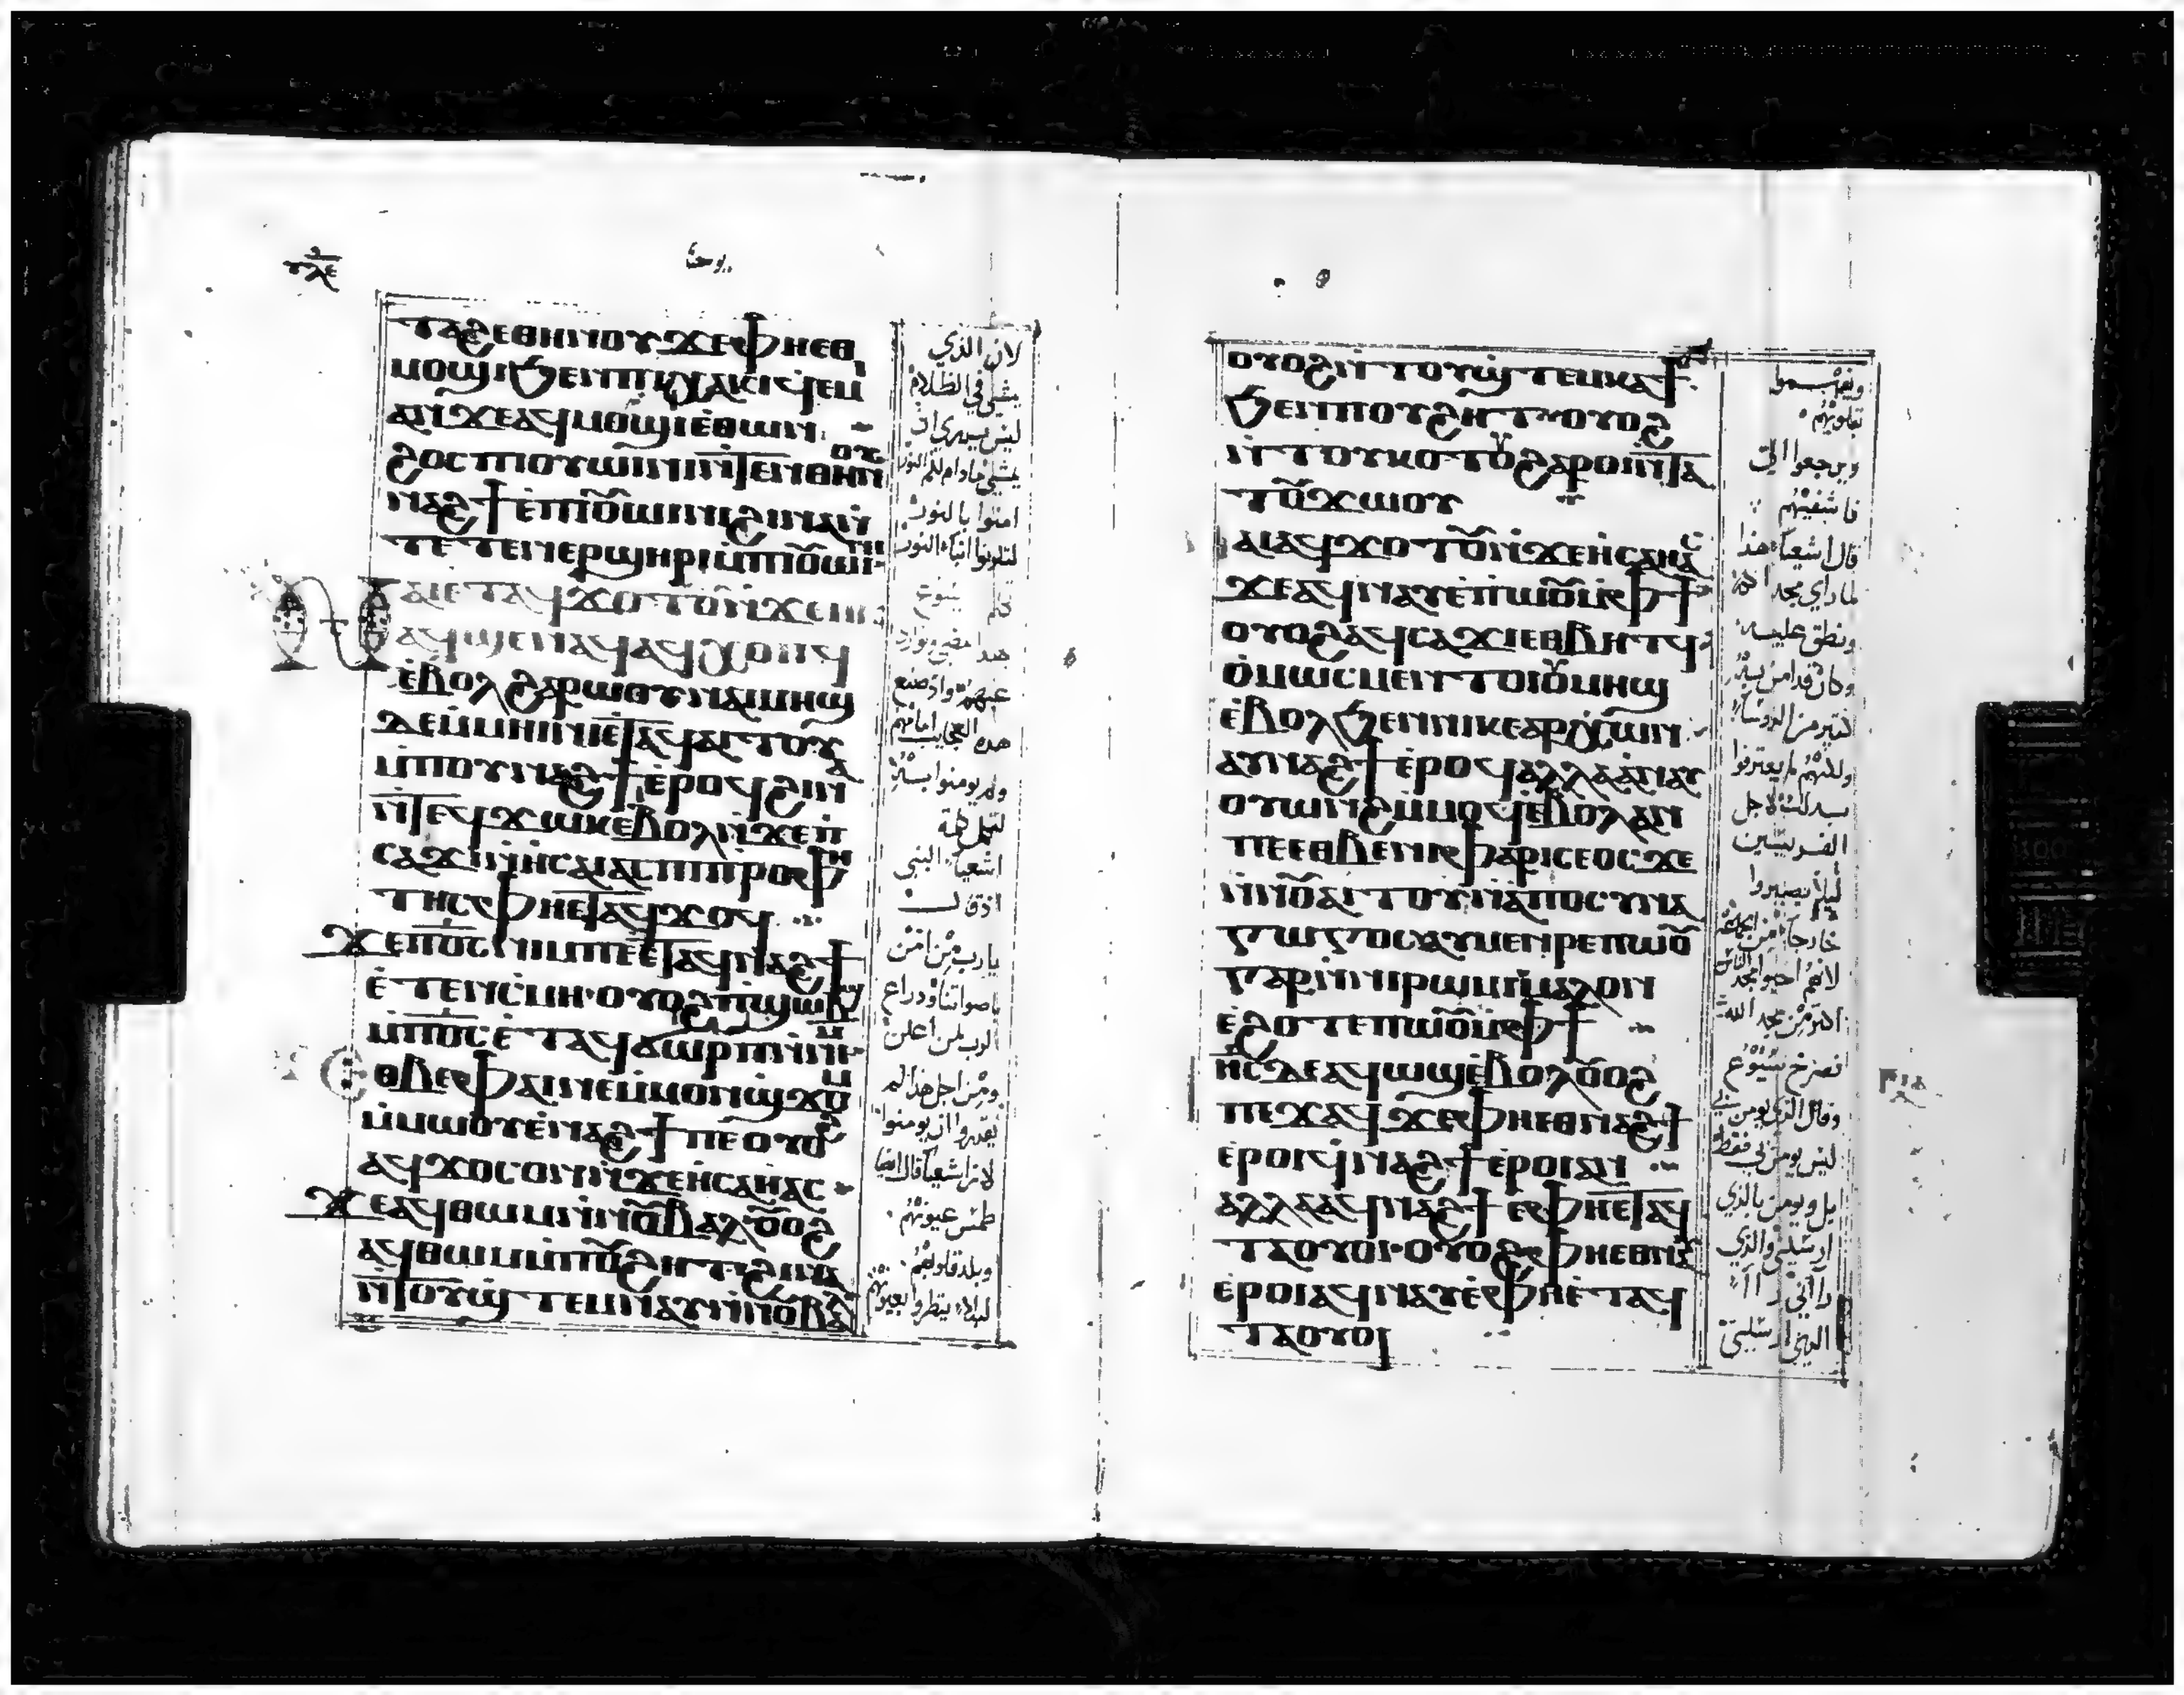 يوحنا
ⲧⲁϩⲉⲑⲏⲛⲟⲩ ϫⲉ ⲫⲏⲉⲑ
ⲙⲟϣⲓ ϧⲉⲛ ⲡⲓⲭⲁⲕⲓ ϥⲉⲙⲓ
ⲁⲛ ϫⲉ ⲁϥⲙⲟϣⲓ ⲉⲑⲱⲛ
ϩⲟⲥ ⲡⲓⲟⲩⲱⲓⲛⲓ ⲛⲧⲉⲛⲑⲏⲛⲟⲩ
ⲛⲁϩϯ ⲉⲡⲓⲟⲩⲱⲓⲛⲓ ϩⲓⲛⲁ ⲛ
ⲧⲉⲧⲉⲛⲉⲣϣⲏⲣⲓ ⲙⲡⲓⲟⲩⲱⲓⲛⲓ
ⲛⲁⲓ ⲉⲧⲁϥϫⲟⲧⲟⲩ ⲛϫⲉ ⲓⲏⲥ
ⲁϥϣⲉⲛⲁϥ ⲁϥⲭⲟⲡϥ
ⲉⲃⲟⲗ ϩⲁⲣⲱⲟⲩ ⲛⲁⲓⲙⲏϣ
ⲇⲉ ⲙⲙⲏⲓⲛⲓ ⲉⲧⲁϥⲁⲓⲧⲟⲩ
ⲙⲡⲟⲩⲛⲁϩϯ ⲉⲣⲟϥ ϩⲓⲛⲁ
ⲛⲧⲉϥϫⲱⲕ ⲉⲃⲟⲗ ⲛϫⲉ ⲡ
ⲥⲁϫⲓ ⲛⲏⲥⲁⲓⲁⲥ ⲡⲓⲡⲣⲟⲫⲏ
ⲧⲏⲥ ⲫⲏⲉⲧⲁϥϫⲟϥ
ϫⲉ ⲡⲟⲥ ⲛⲓⲙ ⲡⲉⲉⲧⲁϥⲛⲁϩϯ
ⲉⲧⲉⲛⲥⲙⲏ ⲟⲩⲟϩ ⲡϣⲱⲃϣ
ⲙⲡⲟⲥ ⲉⲧⲁϥϭⲱⲣⲡ ⲛⲛⲓⲙ
ⲉⲑⲃⲉ ⲫⲁⲓ ⲛⲉⲙⲙⲟⲛϣϫⲟⲙ
ⲙⲙⲱⲟⲩ ⲉⲛⲁϩϯ ⲡⲉ ⲟⲩⲟϩ
ⲁϥϫⲟⲥ ⲟⲛ ⲛϫⲉ ⲏⲥⲁⲏⲁⲥ
ϫⲉ ⲁϥⲑⲱⲙ ⲛⲛⲟⲩⲃⲁⲗ ⲟⲩⲟϩ
ⲁϥⲑⲱⲙ ⲙⲡⲟⲩϩⲏⲧ ϩⲓⲛⲁ
ⲛⲧⲟⲩϣⲧⲉⲙⲛⲁⲩ ⲛⲛⲟⲩⲃⲁⲗ
لان الذي
يمشي في الظلام
ليس يدري اين
يمشي مادام لكم النور
امنوا بالنور
لتكونوا ابناء النور
تكلم يسوع
هذا ومضى وتوارى
عنهم واذ صنع
هذه العجايب امامهم
ولم يومنوا به
لتكمل كلمة
اشعيا النبي
اذ قال
يا رب من امن
باصواتنا وذراع
الرب لمن اعلن
ومن اجل هذا لم
يقدروا ان يومنوا
لان اشعيا قال ايضا
طمس عيونهم
وبلد قلوبهم
ليلا ينظروا بعيونهم
ⲟⲩⲟϩ ⲛⲧⲟⲩϣⲧⲉⲙⲕⲁϯ
ϧⲉⲛ ⲡⲟⲩϩⲏⲧ ⲟⲩⲟϩ
ⲛⲧⲟⲩⲕⲟⲧⲟⲩ ϩⲁⲣⲟⲓ ⲛⲧⲁ
ⲧⲟⲩϫⲱⲟⲩ
ⲛⲁⲓ ⲁϥϫⲟⲧⲟⲩ ⲛϫⲉ ⲏⲥⲁⲏⲁⲥ
ϫⲉ ⲁϥⲛⲁⲩ ⲉⲡⲱⲟⲩ ⲙⲫϯ
ⲟⲩⲟϩ ⲁϥⲥⲁϫⲓ ⲉⲑⲃⲏⲧϥ
ⲟⲙⲱⲥ ⲙⲉⲛⲧⲟⲓ ⲟⲩⲙⲏϣ
ⲉⲃⲟⲗ ϧⲉⲛ ⲛⲓⲕⲉⲁⲣⲭⲱⲛ
ⲁⲩⲛⲁϩϯ ⲉⲣⲟϥ ⲁⲗⲗⲁ ⲛⲁⲩ
ⲟⲩⲱⲛϩ ⲙⲙⲟϥ ⲉⲃⲟⲗ ⲁⲛ
ⲡⲉ ⲉⲑⲃⲉ ⲛⲓⲫⲁⲣⲓⲥⲉⲟⲥ ϫⲉ
ⲛⲛⲟⲩⲁⲓⲧⲟⲩ ⲛⲁⲡⲟⲥⲩⲛⲁ
ⲅⲱⲅⲟⲥ ⲁⲩⲙⲉⲛⲣⲉ ⲡⲱⲟⲩ
ⲅⲁⲣ ⲛⲛⲓⲣⲱⲙⲓ ⲙⲁⲗⲗⲟⲛ
ⲉϩⲟⲧⲉ ⲡⲱⲟⲩ ⲙⲫϯ
ⲓⲏⲥ ⲇⲉ ⲁϥⲱϣ ⲉⲃⲟⲗ ⲟⲩⲟϩ
ⲡⲉϫⲁϥ ϫⲉ ⲫⲏⲉⲑⲛⲁϩϯ
ⲉⲣⲟⲓ ϥⲛⲁϩϯ ⲉⲣⲟⲓ ⲁⲛ
ⲁⲗⲗⲁ ⲁϥⲛⲁϩϯ ⲉⲫⲏⲉⲧⲁϥ
ⲧⲁⲟⲩⲟⲓ ⲟⲩⲟϩ ⲫⲏⲉⲑⲛⲁⲩ
ⲉⲣⲟⲓ ⲁϥⲛⲁⲩ ⲉⲫⲏⲉⲧⲁϥ
ⲧⲁⲟⲩⲟⲓ
ويفهموا
بقلوبهم
ويرجعوا الي
فاشفيهم
قال اشعيا هذا
لما راى مجد الله
ونطق عليه
وكان قد امن به
كثير من الروسا
ولكنهم لم يعترفوا
بذلك لاجل
الفريسيين
ليلا يصيروا
خارجا من
لانهم احبوا مجد الناس
اكثر من مجد الله
فصرخ يسوع
وقال الذي يومن بي
ليس يومن بي فقط
بل ويومن بالذي
ارسلني والذي
راني
الذي ارسلني